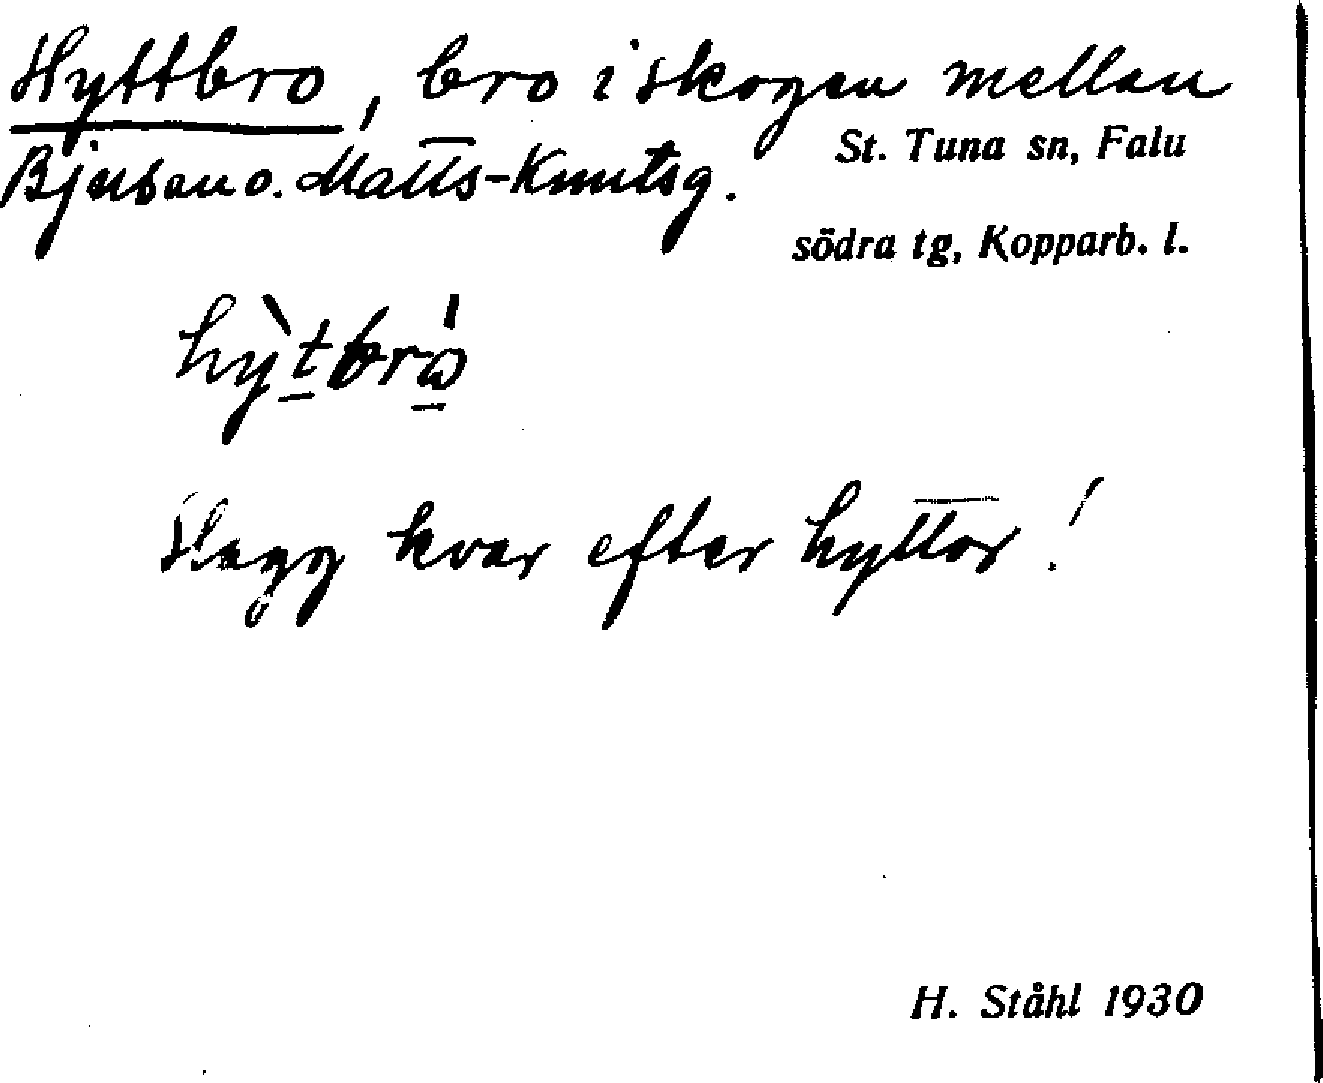 Hyttbro, bro i skogen mellan
St. Tuna sn, Falu
Bjusan o. Matts-Knutsg.
södra tg, Kopparb. l.
hỳtbrò
Slagg kvar efter hyttor!
H. Ståhl 1930